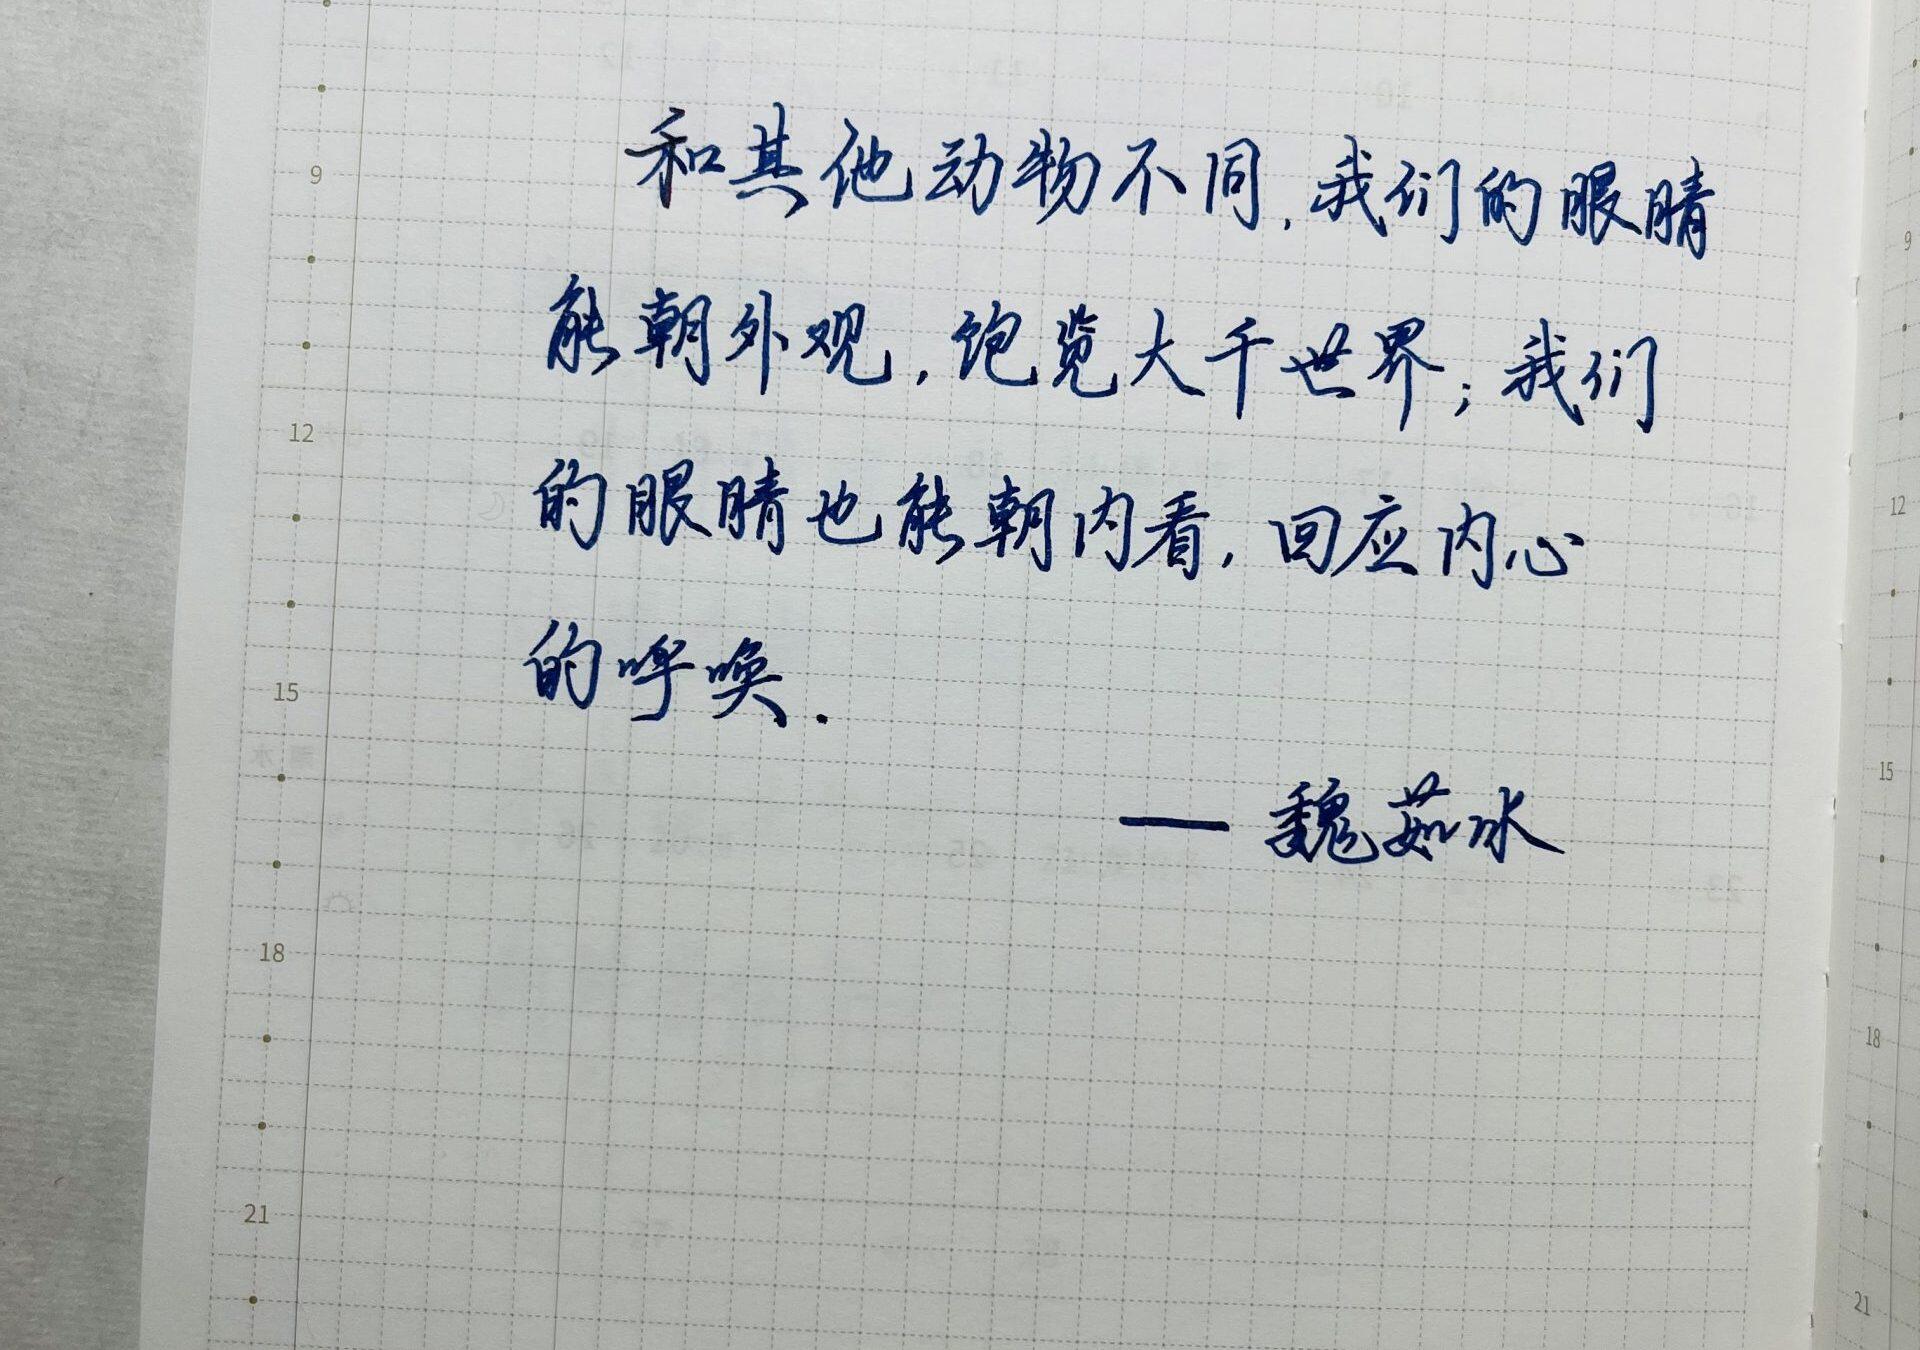 和其他动物不同,我们的眼睛
能朝外观,饱览大千世界;我们
的眼睛也能朝内看,回应内心
的呼唤.
— 魏茹冰
9
12
15
18
21
9
12
15
18
21